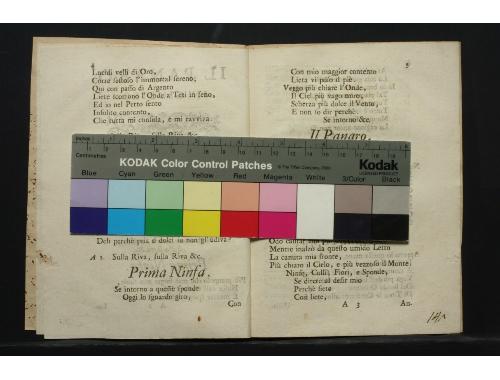 Lucidi velli di Oro,
Corre festoso l'immortal sereno;
Qui con passo di Argento
Liete scorrono l'Onde a Teti in seno,
Ed io nel Petto sento
Insolito contento,
Che tutta mi consola, e mi ravviva.
Deh perchè più dolci in non gli udiva?
A 2. Sulla Riva, sulla Riva &c.
Prima Ninfa.
Se intorno a queste sponde
Oggi lo sguardo giro,
Con
5
Con mio maggior contento
Lieta vi poso il piè.
Veggo più chiare l'Onde,
Il Ciel più vago miro,
Scherza più dolce il Vento,
E non so dir perchè.
Se intorno &c.
Il Panaro.
inches
Centimetres
KODAK Color Control Patches
© The Tiffen Company, 2000
Kodak
LICENSED PRODUCT
Blue Cyan Green Yellow Red Magenta White 3/Color Black
Mentre inalzo da questo umido Letto
La canuta mia fronte,
Più chiaro il Cielo, e più vezzoso il Monte.
Ninfe, Colli, Fiori, e Sponde,
Se direte al desir mio
Perchè siete
Così liete,
A 3
An.